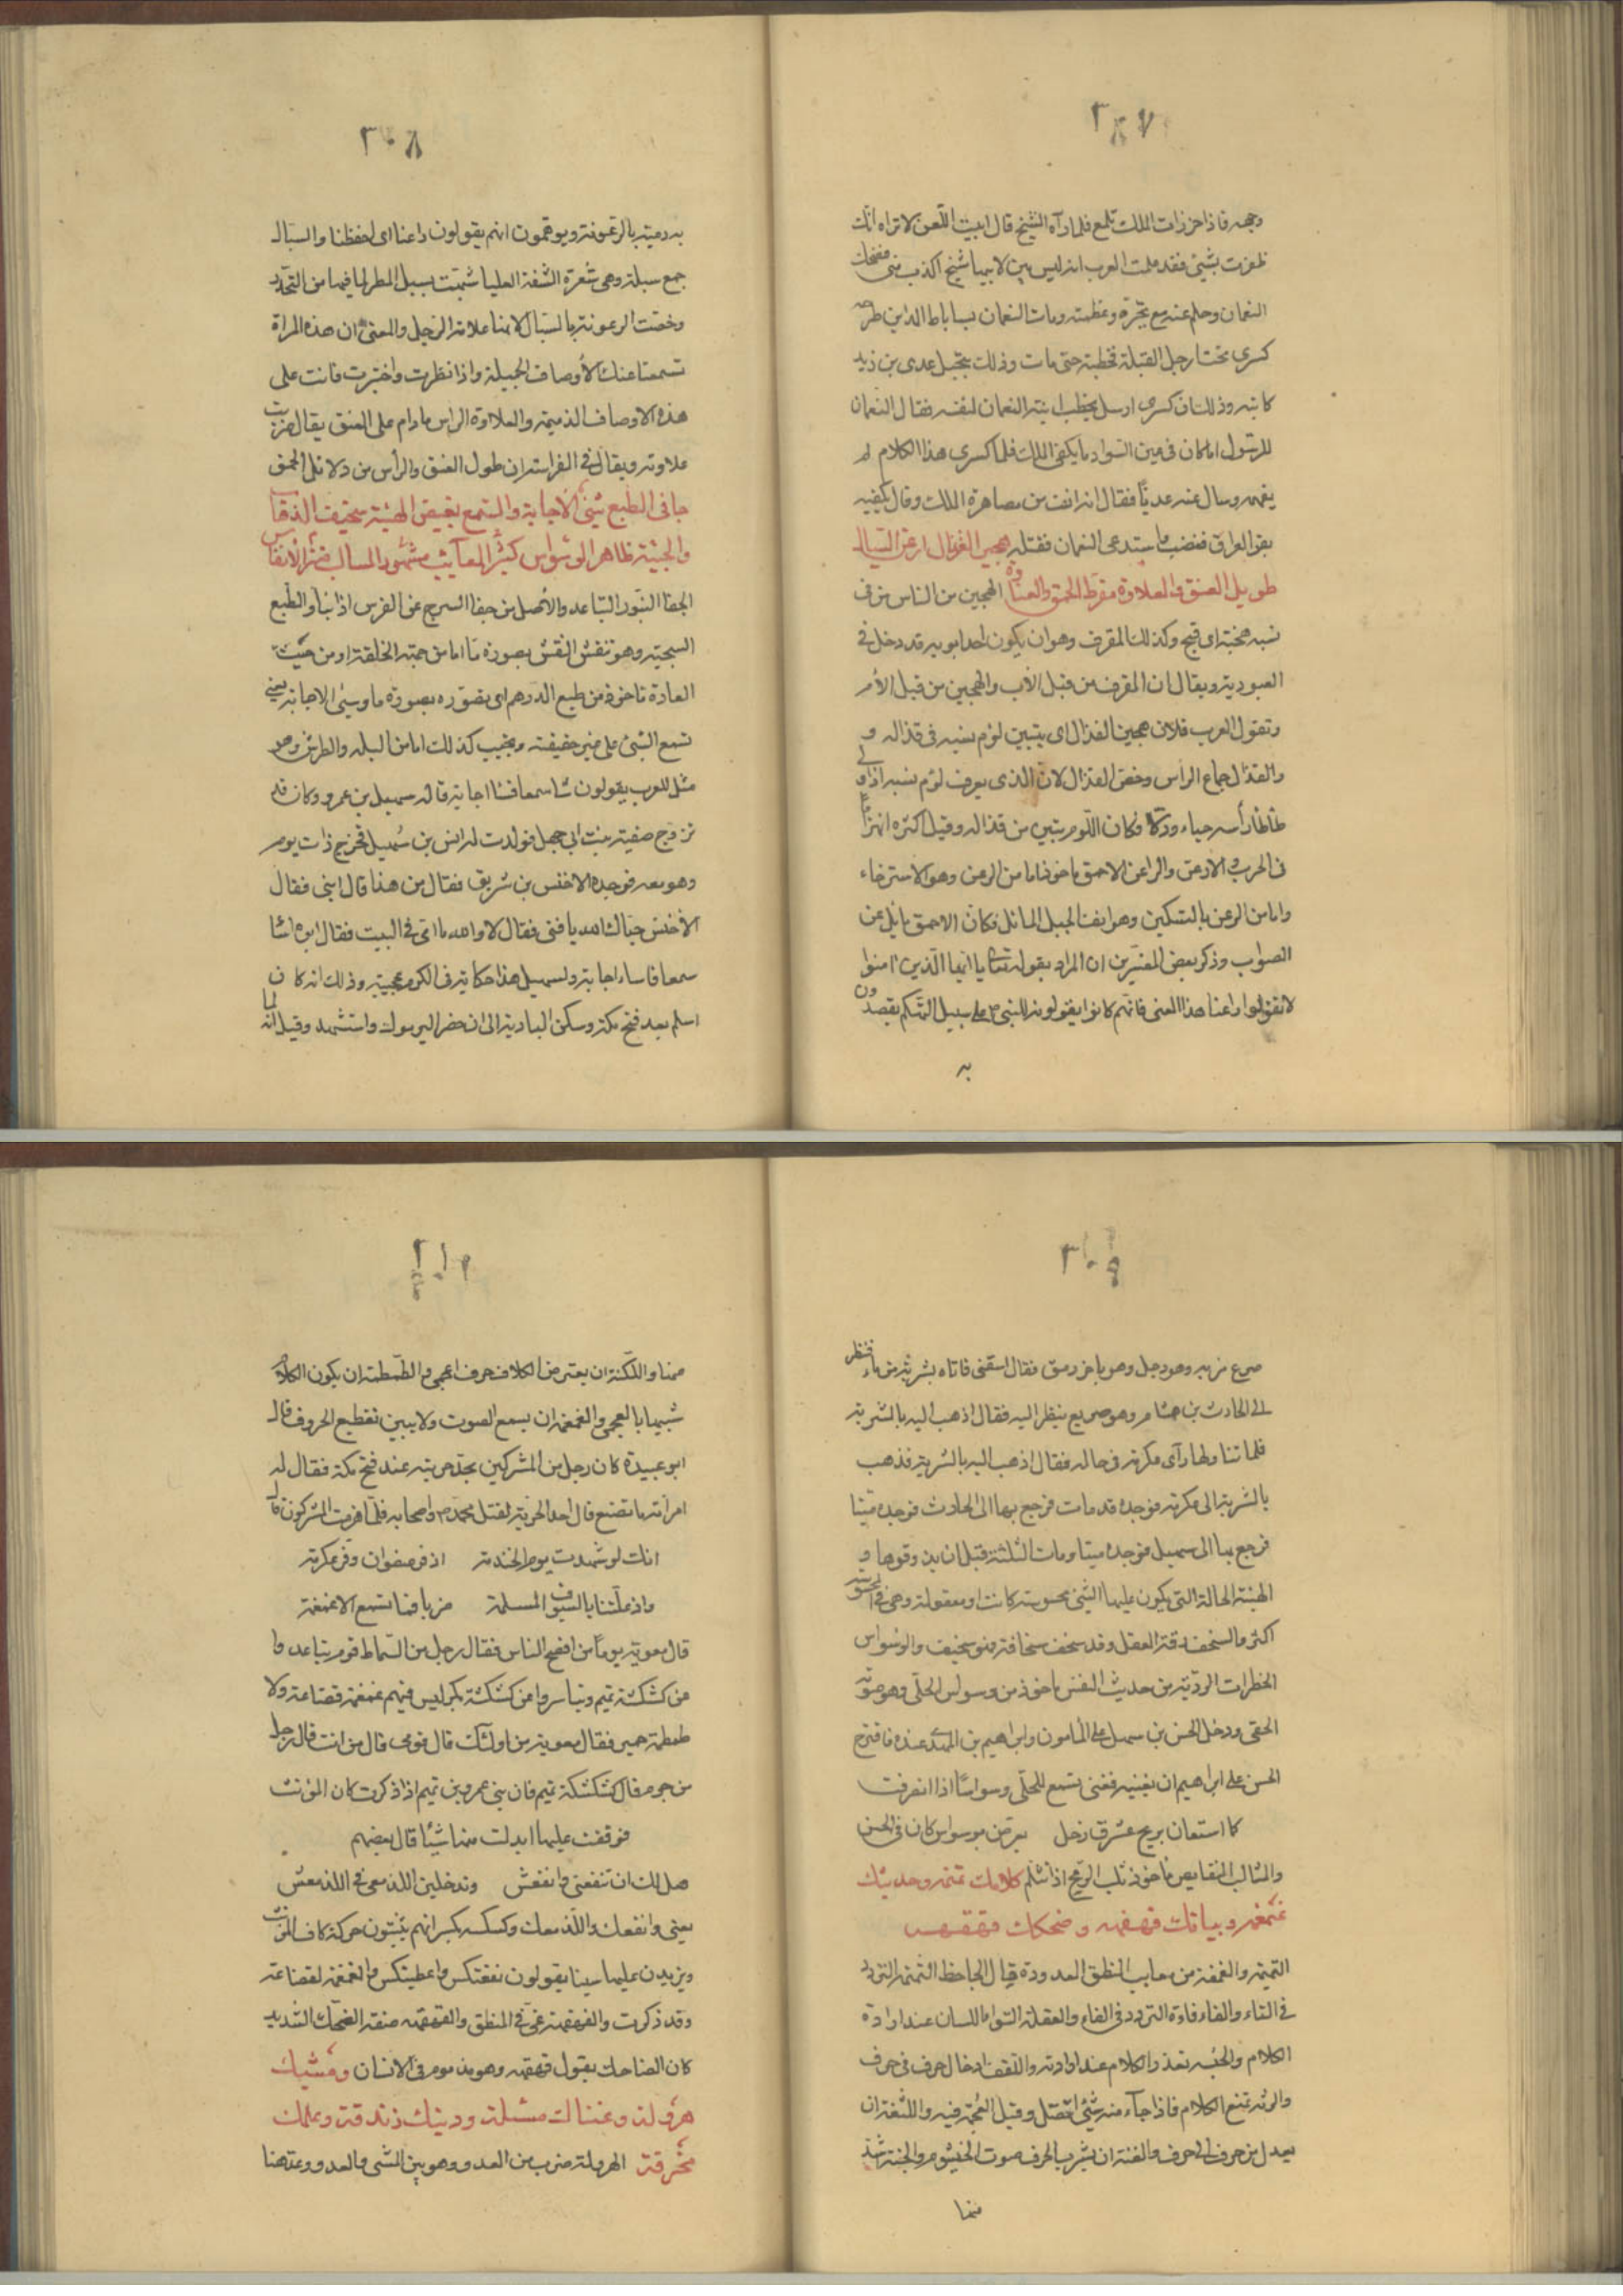 ٣٠٧
وجهه فاذا خرزات الملك تلمع فلما رآه الشيخ قال ابيت اللعن لا تراه انك
ظفرت بشئ فقد علمت العرب انه ليس بين لابتيها شيخ اكذب منى فضحك
النعمان وحلم عنه مع تجبره وعظمته ومات النعمان بساباط المداين طرحه
كسرى تحت ارجل الفيلة فخبطته حتى مات وذلك بتحيل عدى بن زيد
كاتبه وذلك ان كسرى ارسل يخطب ابنته النعمان لنفسه فقال النعمان
للرسول اما كان فى عين السواد ما يكفى الملك فلما كسرى هذا الكلام لم
يفهمه وسال عنه عديا فقال انه انف من مصاهرة الملك وقال يكفيه
بقر العراق فغضب ما ستدعى النعمان فقتله هجين القذال ارعن السبال
طويل العنق والعلاوة مفرط الحمق والغباوة الهجين من الناس من فى
نسبه هجنة اى قبح وكذلك المقرف وهو ان يكون احد ابويه قد دخل فى
العبودية ويقال ان المقرف من قبل الاب والهجين من قبل الأم
وتقول العرب فلان هجين القذال اى يتبين لؤم نسبه فى قذاله و
والقذال جماع الراس وخص القذال لان الذى يعرف لؤم نسبه اذا ولى
طأطأ رأسه حياء وذلا فكان اللوم يتبين من قذاله وقيل كثره انهزاما
فى الحرب الارعن والراعن الاحمق ماخوذ اما من الرعن وهو الاسترخاء
واما من الرعن بالتسكين وهو انف الجبل المائل فكان الاحمق مائل عن
الصواب وذكر بعض المفسرين ان المراد بقوله تعالى يا ايها الذين آمنوا
لا تقولوا راعنا هذا المعنى فانهم كانوا يقولونه للنبى ص على سبيل التهكم يقصدون
به
٣٠٨
به رميته بالرعونة ويوهمون انهم يقولون راعنا اى احفظنا والسبال
جمع سبلة وهى شعرة الشفة العليا شبهت بسبل المطر لما فيها من التحدر
وخصت الرعونة بالسبال لانها علامة الرجل والمعنى ان هذه المراة
تسمعنا عنك الأوصاف الجميلة واذا نظرت واختبرت فانت على
هذه الاوصاف الذميمة والعلاوة الراس ما دام على العنق يقال ضربت
علاوته ويقال فى الفراسة ان طول العنق والرأس من دلائل الحمق
جافى الطبع سيئ الاجابة والسمع بغيض الهيئة سخيف الذهاب
والجيئة ظاهر الوسواس كثير المعايب مشهور المسالب منتن الانفاس
الجفا النبو والتباعد والاصل من جفا السرج عن الفرس اذا نبا والطبع
السجية وهو نقش النفس بصورة ما اما من جهة الخلقة او من حيث
العادة ماخوذ من طبع الدرهم اى تصوره بصورة ما وسيئ الاجابة يعنى
تسمع الشئ على غير حقيقته وتجيب كذلك اما من البله والطرش وهو
مثل للعرب يقولون شا سمعا فشا اجابة قاله سهيل بن عمرو وكان قد
تزوج صفية بنت ابى جهل فولدت له انس بن سهيل فخرج ذات يوم
وهو معه فوجده الاخنس بن شريق فقال من هذا قال ابنى فقال
الأخنس حياك الله يا فتى فقال لا والله ما اتى فى البيت فقال ابوه اشا
سمعا فاساء اجابة ولسهيل هذا حكاية فى الكرم عجيبة وذلك انه كان
اسلم بعد فتح مكة وسكن البادية الى ان حضر اليرموك واستشهد وقيل انه لما
٣٠٩
صرع مر به وهو رجل وهو باخر رمق فقال اسقنى فاتاه بشربة من ماء فنظر
الى الحارث بن هشام وهو صريع ينظر اليه فقال اذهب اليه بالشربة
فلما تناولها رآى عكرمة فى حاله فقال اذهب اليه بالشربة فذهب
بالشربة الى عكرمة فوجده قد مات فرجع بها الى الحارث فوجده ميتا
فرجع بها الى سهيل فوجده ميتا ومات الثلثة قبل ان يذوقوها و
الهيئة الحالة التى يكون عليها الشئ محسوسة كانت او معقولة وهى فى المحسوسة
اكثر والسخف رقة العقل وقد سخف سخافة فهو سخيف والوسواس
الخطرات الردية من حديث النفس ماخوذ من وسواس الحلى وهو صوته
الخفى ودخل الحسن بن سهل على المامون وابراهيم بن المهدى عنده فاقترح
الحسن على ابراهيم ان يغنيه فغنى تسمع للحلى وسواسا اذا انصرفت
كما استعان بريح عشرق زجل يعرض بوسواس كان فى الحسن
والمثالب النقايص ماخوذ ثلب الرمح اذا تثلم كلامك تمتمة وحديثك
غمغمة وبيانك فهفهة وضحكك قهقهة
التمتمة والغمغمة من معايب المنطق المعدودة قال الجاحظ التمتمة التردد
فى التاء والفاء فاءة التردد فى الفاء والعقلة التواء اللسان عند ارادة
الكلام والحبسة تعذر الكلام عند ارادته واللفف ادخال حرف فى حرف
والرتة تمنع الكلام فاذا جآء منه شئ اتصل وقيل العجمة فيه واللثغة ان
يعدل من حرف الى حرف والغنة ان يشرب الحرف صوت الخيشوم والخنة شدة
منها
٣١٠
منها واللكنة ان يعترض الكلام حرف اعجمى والطمطمة ان يكون الكلام
شبيها بالعجمى والغمغمة ان يسمع الصوت ولا يبين تقطيع الحروف قال
ابو عبيدة كان رجل من المشركين يحد حربته عند فتح مكة فقال له
امرأته ما تصنع قال احد الحربة لقتل محمد ص واصحابه فلما هزمت المشركون قال
انك لو شهدت يوم الخندمة اذ فر صفوان وفر عكرمة
واذ علتنا بالسيوف المسلمة ضربا فما تسمع الا غمغمة
قال معوية يوما من افصح الناس فقال رجل من السماط قوم تباعدوا
عن كشكشة تميم وتياسروا عن كشكشة بكر ليس فيهم غمغمة قضاعة ولا
طمطمة حمير فقال معوية من اولئك قال قومى قال من انت قال رجل
من جرم فقال كشكشكة تميم فان بنى عمرو بن تميم اذا ذكرت كان المؤنث
فوقفت عليها ابدلت منها شيئا قال بعضهم
هل لك ان تنفعنى وانفعش وتدخلين اللذ معى فى اللذ معش
يعنى وانفعك واللذ معك وكسكسة بكر انهم يثبتون حركة كاف المؤنث
ويزيدن عليها سينا يقولون نفعتكس واعطيتكس والغمغمة لقضاعة
وقد ذكرت والفهفهة عى فى المنطق والقهقهة صفة الضحك الشديد
كان الضاحك يقول قهقهه وهو مذموم فى الانسان ومشيك
هرولة وغناك مشئلة ودينك زندقة وعلمك
مخرقة الهرولة ضرب من العدو وهو بين المشى والعدو وعتصنا